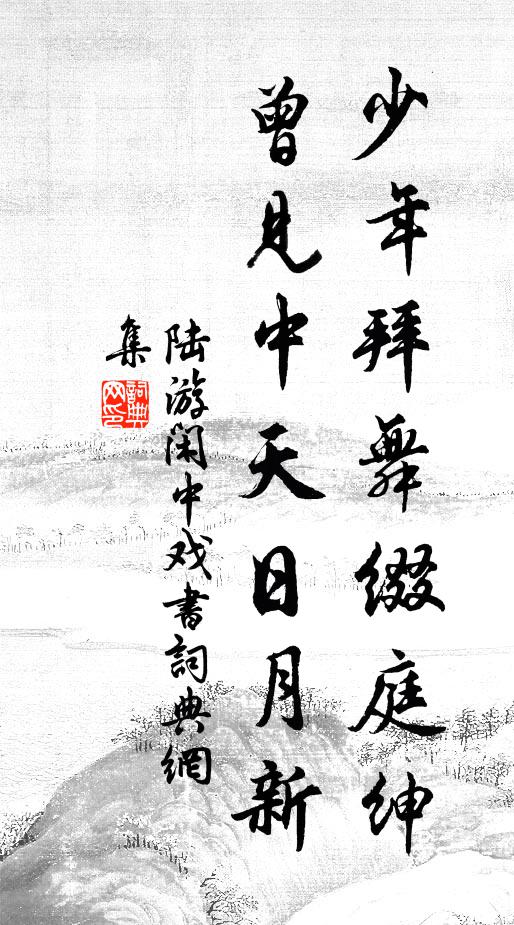 少年拜舞缀庭绅
曾見中天日月新
陆游闲中戏書詞典網
集
詞典网印